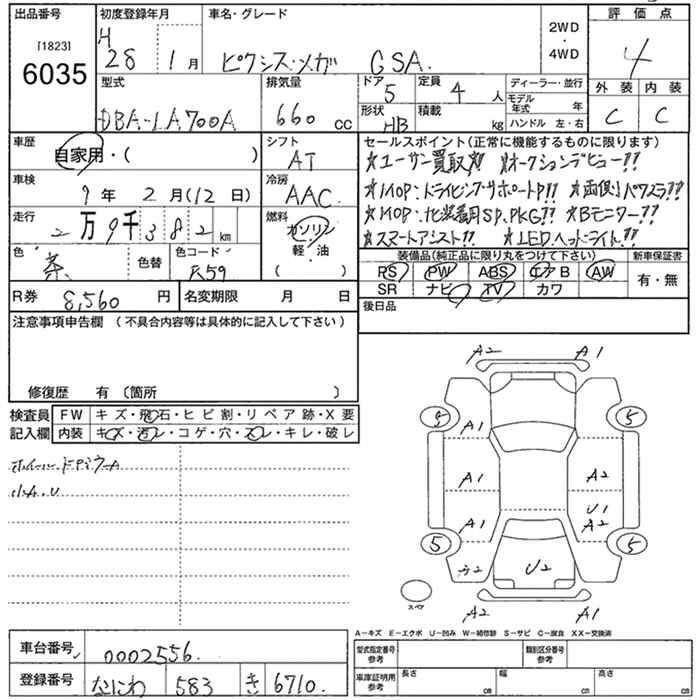 出品番号 初度登録年月 車名・グレード 評価点
[1823] 6035
H 28 1月 ピクシス・メガ GSA. 2WD・4WD 4
外装 内装
C C
型式 排気量 ドア 定員 ディーラー・並行
5 4人 モデル年式 年
DBA-LA700A 660 cc 形状 積載 ハンドル 左・右
HB kg
車歴 シフト セールスポイント(正常に機能するものに限ります)
自家用・( ) AT ★ユーザー買取!! ★オークションデビュー!!
車検 冷房 ★MOP:ドライビングサポートP!! ★両側パワスラ!!
9年 2月(12日) AAC ★MOP:化装着用SP.PKG!! ★Bモニター!!
走行 燃料 ★スマートアシスト!! ★LEDヘッドライト!!
2万9千382km ガソリン
軽・油
( )
色 色替 色コード 装備品(純正品に限り丸をつけて下さい) 新車保証書
茶 R59 PS PW ABS エアB AW 有・無
SR ナビ TV カワ
R券 8,560円 名変期限 月 日 後日品
注意事項申告欄 (不具合内容等は具体的に記入して下さい)
修復歴 有 〔箇所 〕
検査員 FW キズ・飛石・ヒビ割・リペア跡・X要
記入欄 内装 キズ・汚レ・コゲ・穴・スレ・キレ・破レ
小A.U
A2 A1
5 5
A1
A1 A2
U1
A1 A2
5 5
U2
スペア
A2 A1
A-キズ E-エクボ U-凹み W-補修跡 S-サビ C-腐食 XX-交換済
車台番号 0002556. 型式指定番号 参考 類別区分番号 参考
登録番号 なにわ 583 き 6710. 車庫証明用 参考 長さ cm 幅 cm 高さ cm